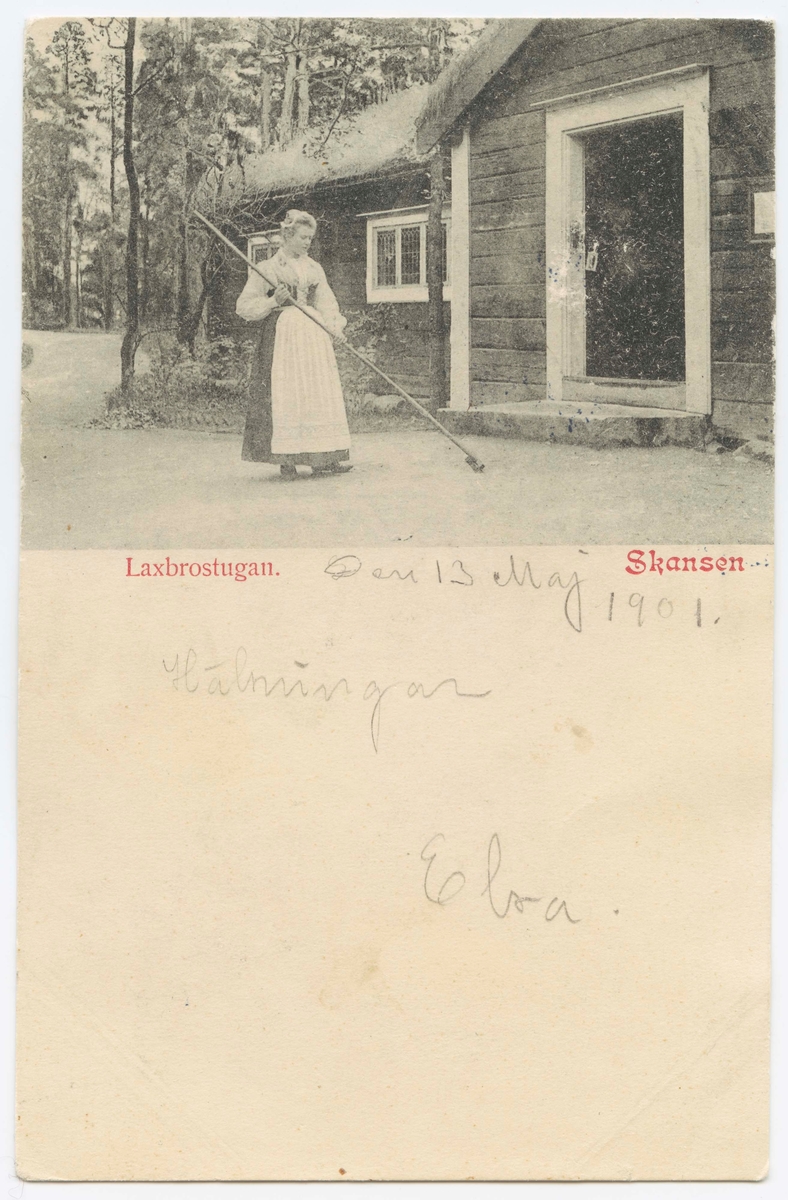 Laxbrostugan. Den 13 Maj Skansen
1901.
Hälsningar
Elsa.